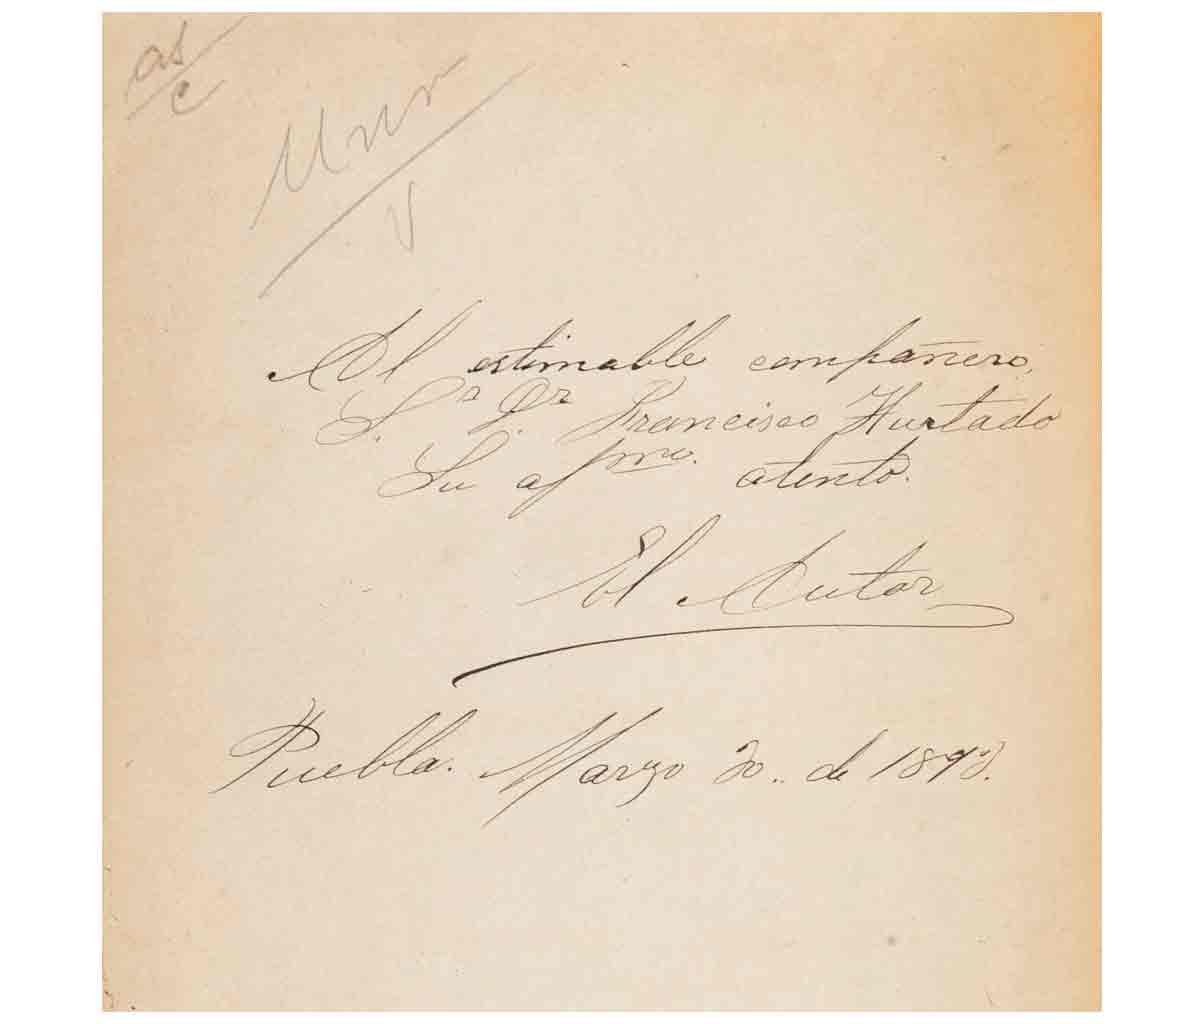 as
c
V
Al estimable compañero,
S.r D.r Francisco Hurtado
Su afmo. atento.
El Autor
Puebla. Marzo 20. de